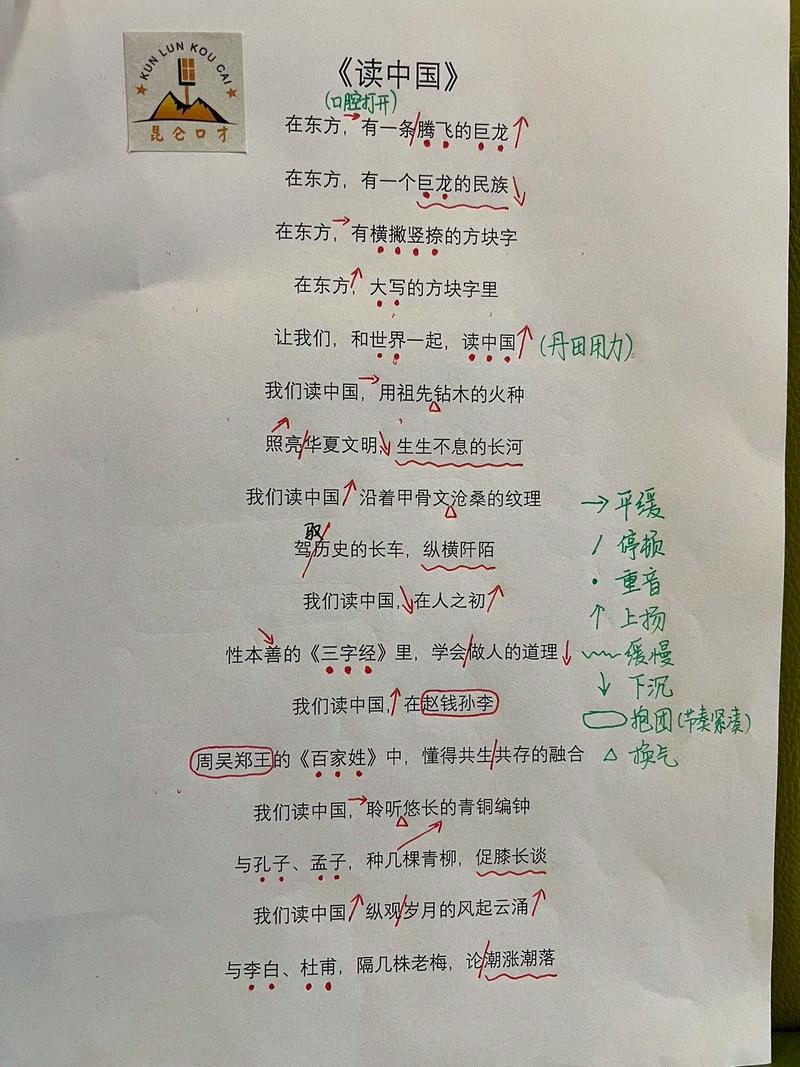 KUN LUN KOU CAI
昆仑口才
《读中国》
(口腔打开)
在东方，有一条腾飞的巨龙
在东方，有一个巨龙的民族
在东方，有横撇竖捺的方块字
在东方，大写的方块字里
让我们，和世界一起，读中国
(丹田用力)
我们读中国，用祖先钻木的火种
照亮华夏文明，生生不息的长河
我们读中国，沿着甲骨文沧桑的纹理
驭
驾历史的长车，纵横阡陌
我们读中国，在人之初
性本善的《三字经》里，学会做人的道理
我们读中国，在赵钱孙李
周吴郑王的《百家姓》中，懂得共生共存的融合
我们读中国，聆听悠长的青铜编钟
与孔子、孟子，种几棵青柳，促膝长谈
我们读中国，纵观岁月的风起云涌
与李白、杜甫，隔几株老梅，论潮涨潮落
→平缓
/停顿
•重音
↑上扬
﹏缓慢
↓下沉
抱团(节奏紧凑)
△换气